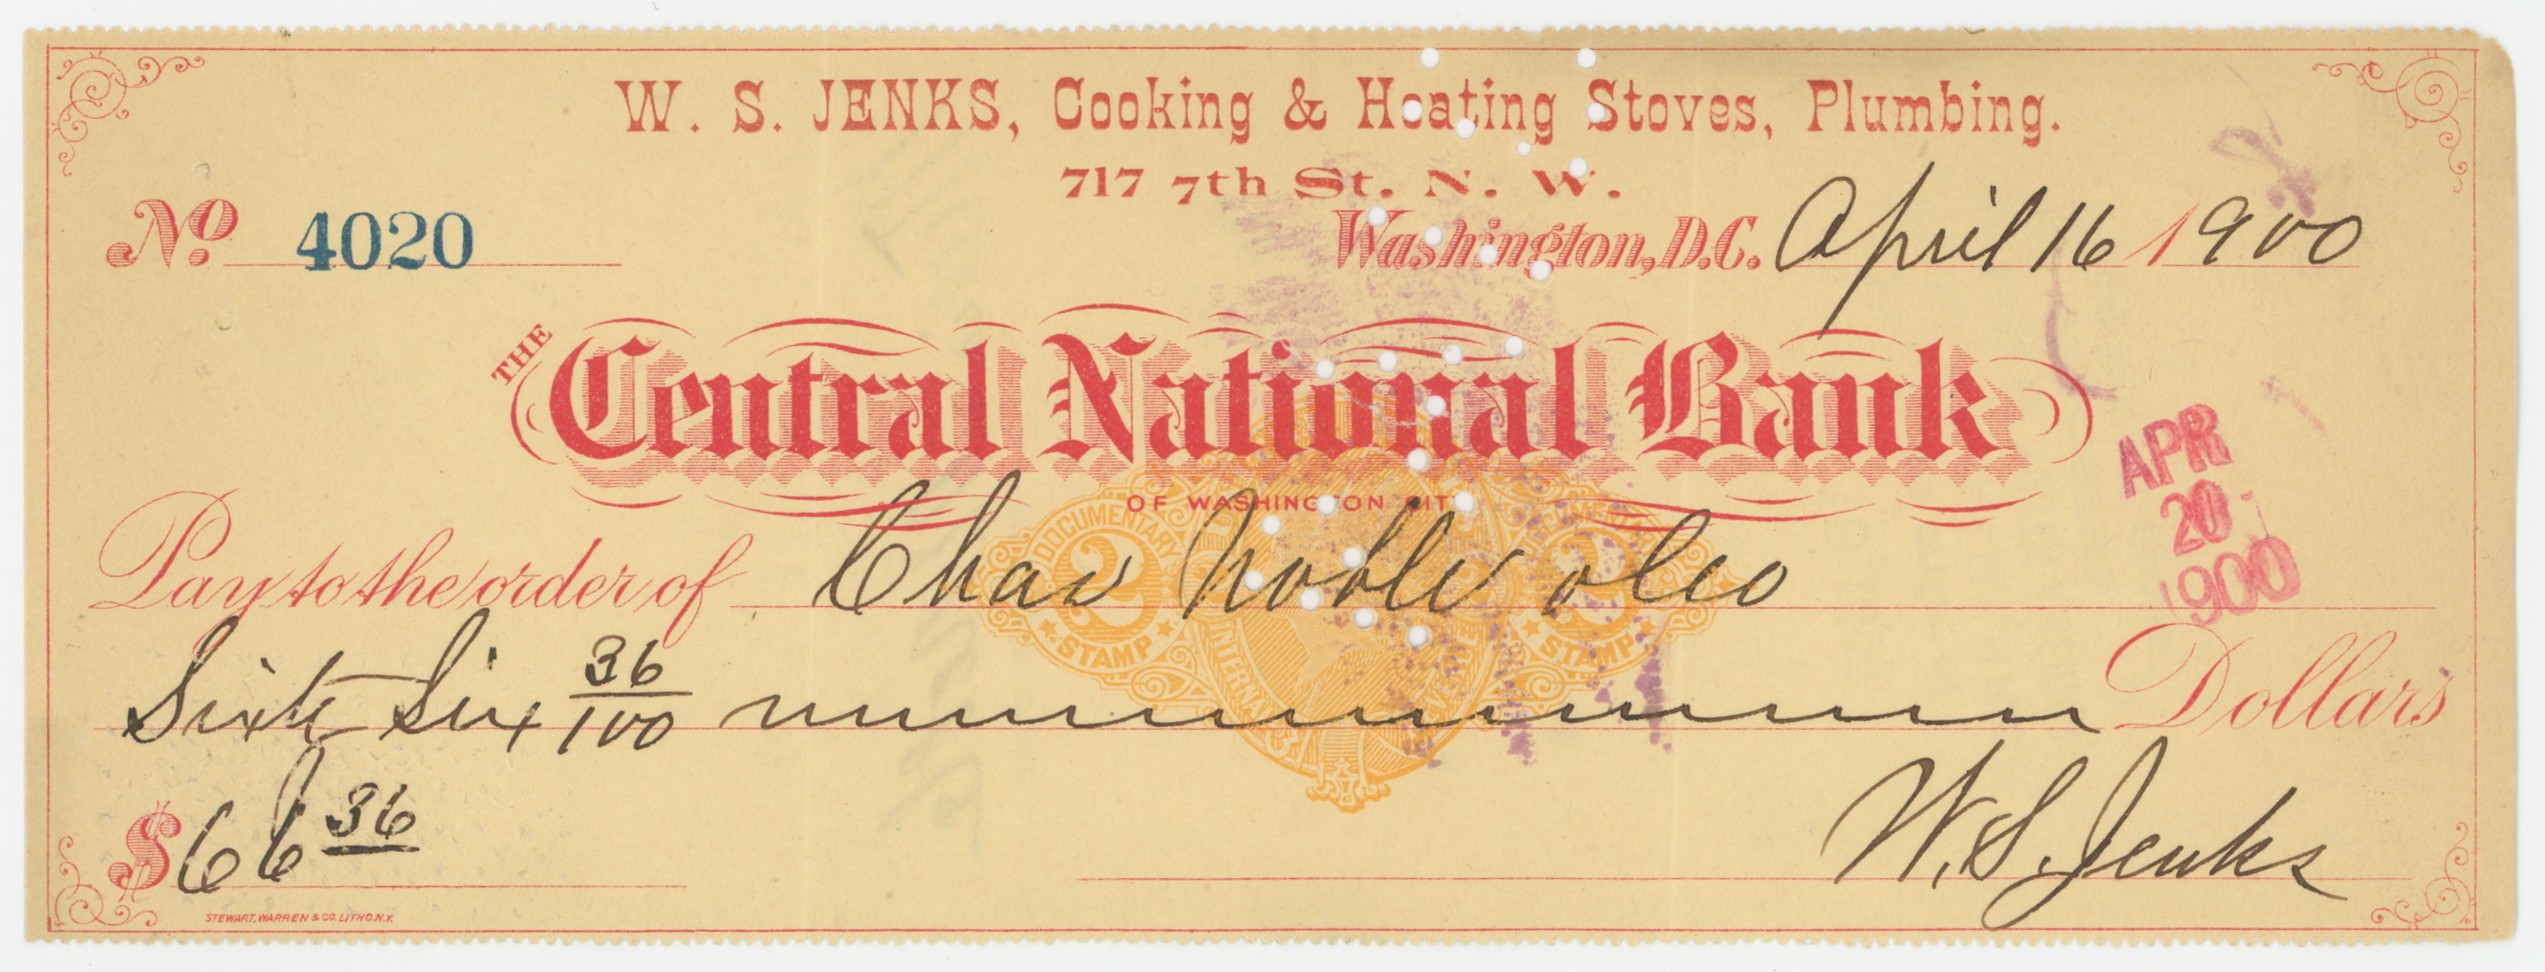 W. S. JENKS, Cooking & Heating Stoves, Plumbing.
717 7th St. N. W.
No. 4020
Washington, D.C. April 16 1900
THE Central National Bank
OF WASHINGTON CITY
APR
20
1900
Pay to the order of Chas Noble & Co
DOCUMENTARY
2 2
STAMP STAMP
INTERNAL
Sixty Six 36/100 Dollars
$66 36
W. S. Jenks
STEWART, WARREN & CO. LITHO. N.Y.